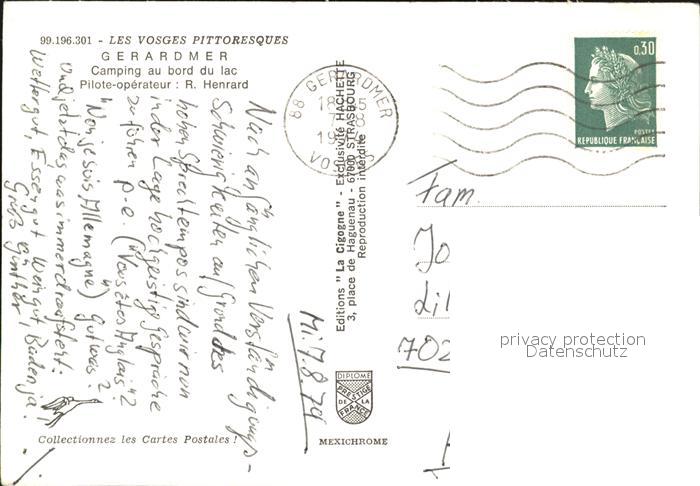 99.196.301 - LES VOSGES PITTORESQUES
GERARDMER
Camping au bord du lac
Pilote-opérateur : R. Henrard
Nach anfänglichen Verständigungs-
Schwierigkeiten auf Grund des
hohen Sprechtempos sind wir nun
in der Lage hochgeistige Gespräche
zu führen p.e. ("Vous êtes Anglais"?
"Non je suis Allemagne) Gut was?
Und jetzt das was immer draufsteht:
Wetter gut, Essen gut Wein gut, Baden ja!
Gruß ein
Günther!
Mi. 7.8.74
88 GERARDMER
18
7-8
VOSGES
Editions "La Cigogne" - Exclusivité HACHETTE
3, place de Haguenau - 67000 STRASBOURG
Reproduction interdite
0,30
POSTES
REPUBLIQUE FRANÇAISE
Fam.
Jo
Lil
702
privacy protection
Datenschutz
DIPLOME
PRESTIGE
DE LA
FRANCE
Collectionnez les Cartes Postales !
MEXICHROME